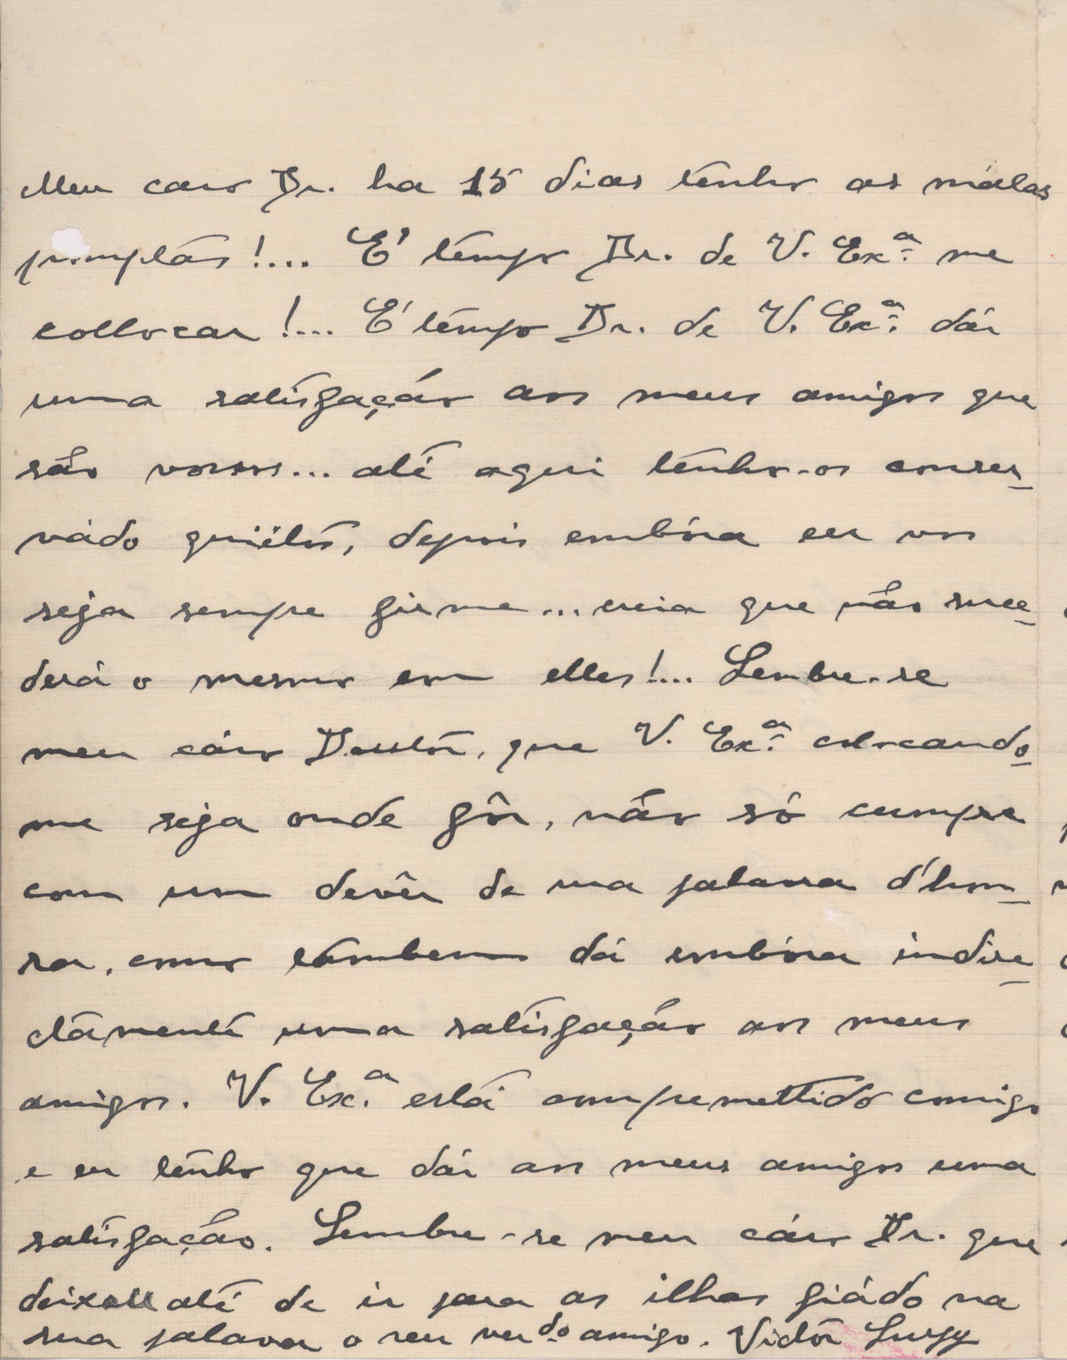 Meu caro Dr. ha 15 dias tenho as málas
promptas!... E' tempo Dr. de V. Exª. me
collocar!... E' tempo Dr. de V. Exª. dár
uma satisfação aos meus amigos que
são vossos... até aqui tenho-os conser-
vádo quiétos, depois embóra eu vos
seja sempre firme... creia que não suce-
derá o mesmo em elles!... Lembre-se
meu cáro Doutôr, que V. Exª. colocando-
me seja onde fôr, não só cumpre
com um devêr de sua palavra d'hon-
ra, como tambem dá embóra indire-
ctamente uma satisfação aos meus
amigos. V. Exª. está compromettido comigo
e eu tenho que dár aos meus amigos uma
satisfação. Lembre-se meu cáro Dr. que
deixei até de ir para as ilhas fiádo na
sua palavra o seu verdo amigo. Victôr